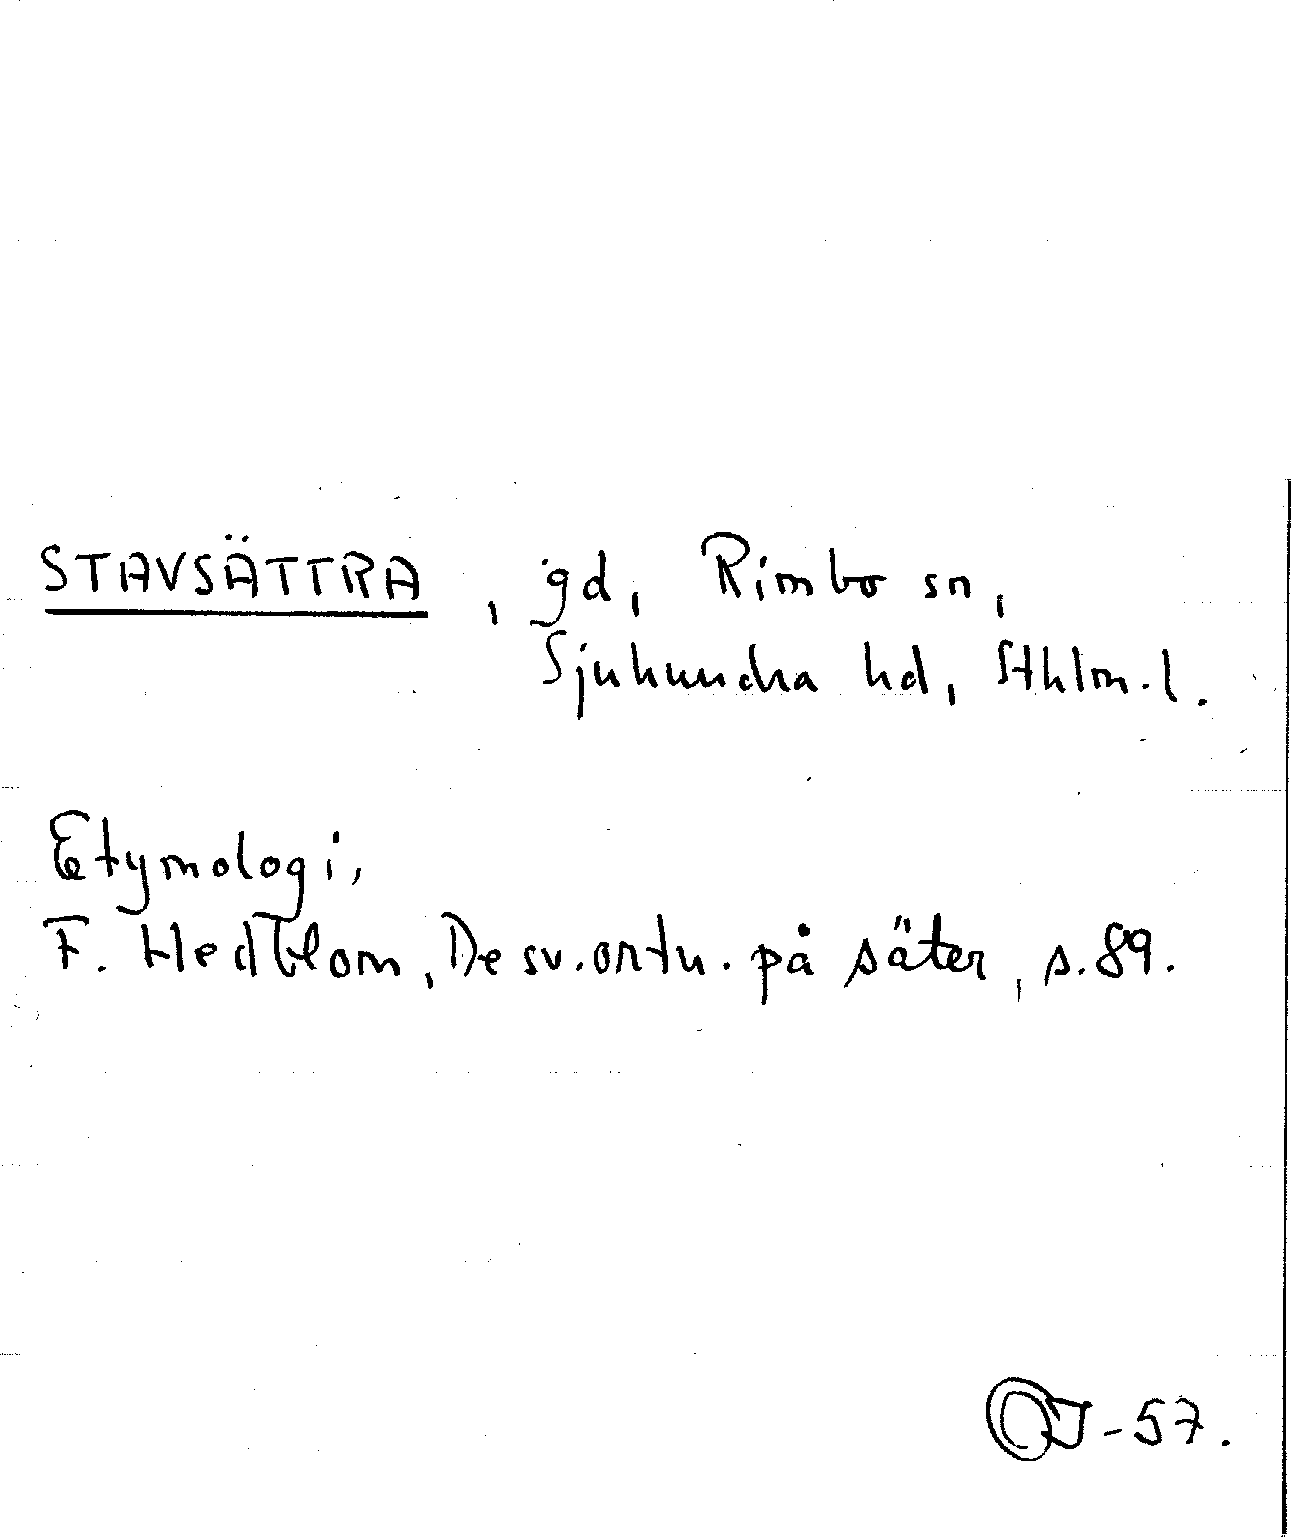 STAVSÄTTRA, gd, Rimbo sn,
Sjuhundra hd, Sthlm.l.
Etymologi,
F. Hedblom, De sv. ortn. på säter, s. 89.
OJ-57.